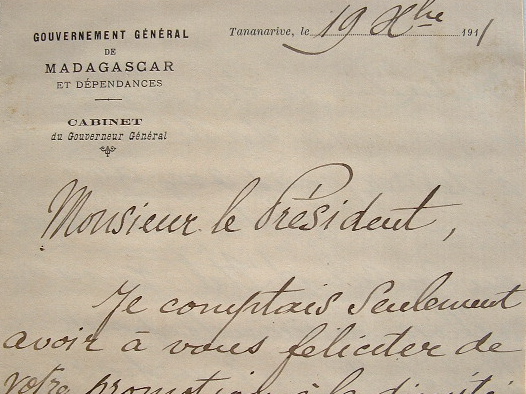 GOUVERNEMENT GÉNÉRAL
DE
MADAGASCAR
ET DÉPENDANCES
CABINET
du Gouverneur Général
Tananarive, le 19 Xbre 1911
Monsieur le Président,
Je comptais seulement
avoir à vous féliciter de
votre promotion à la dignité